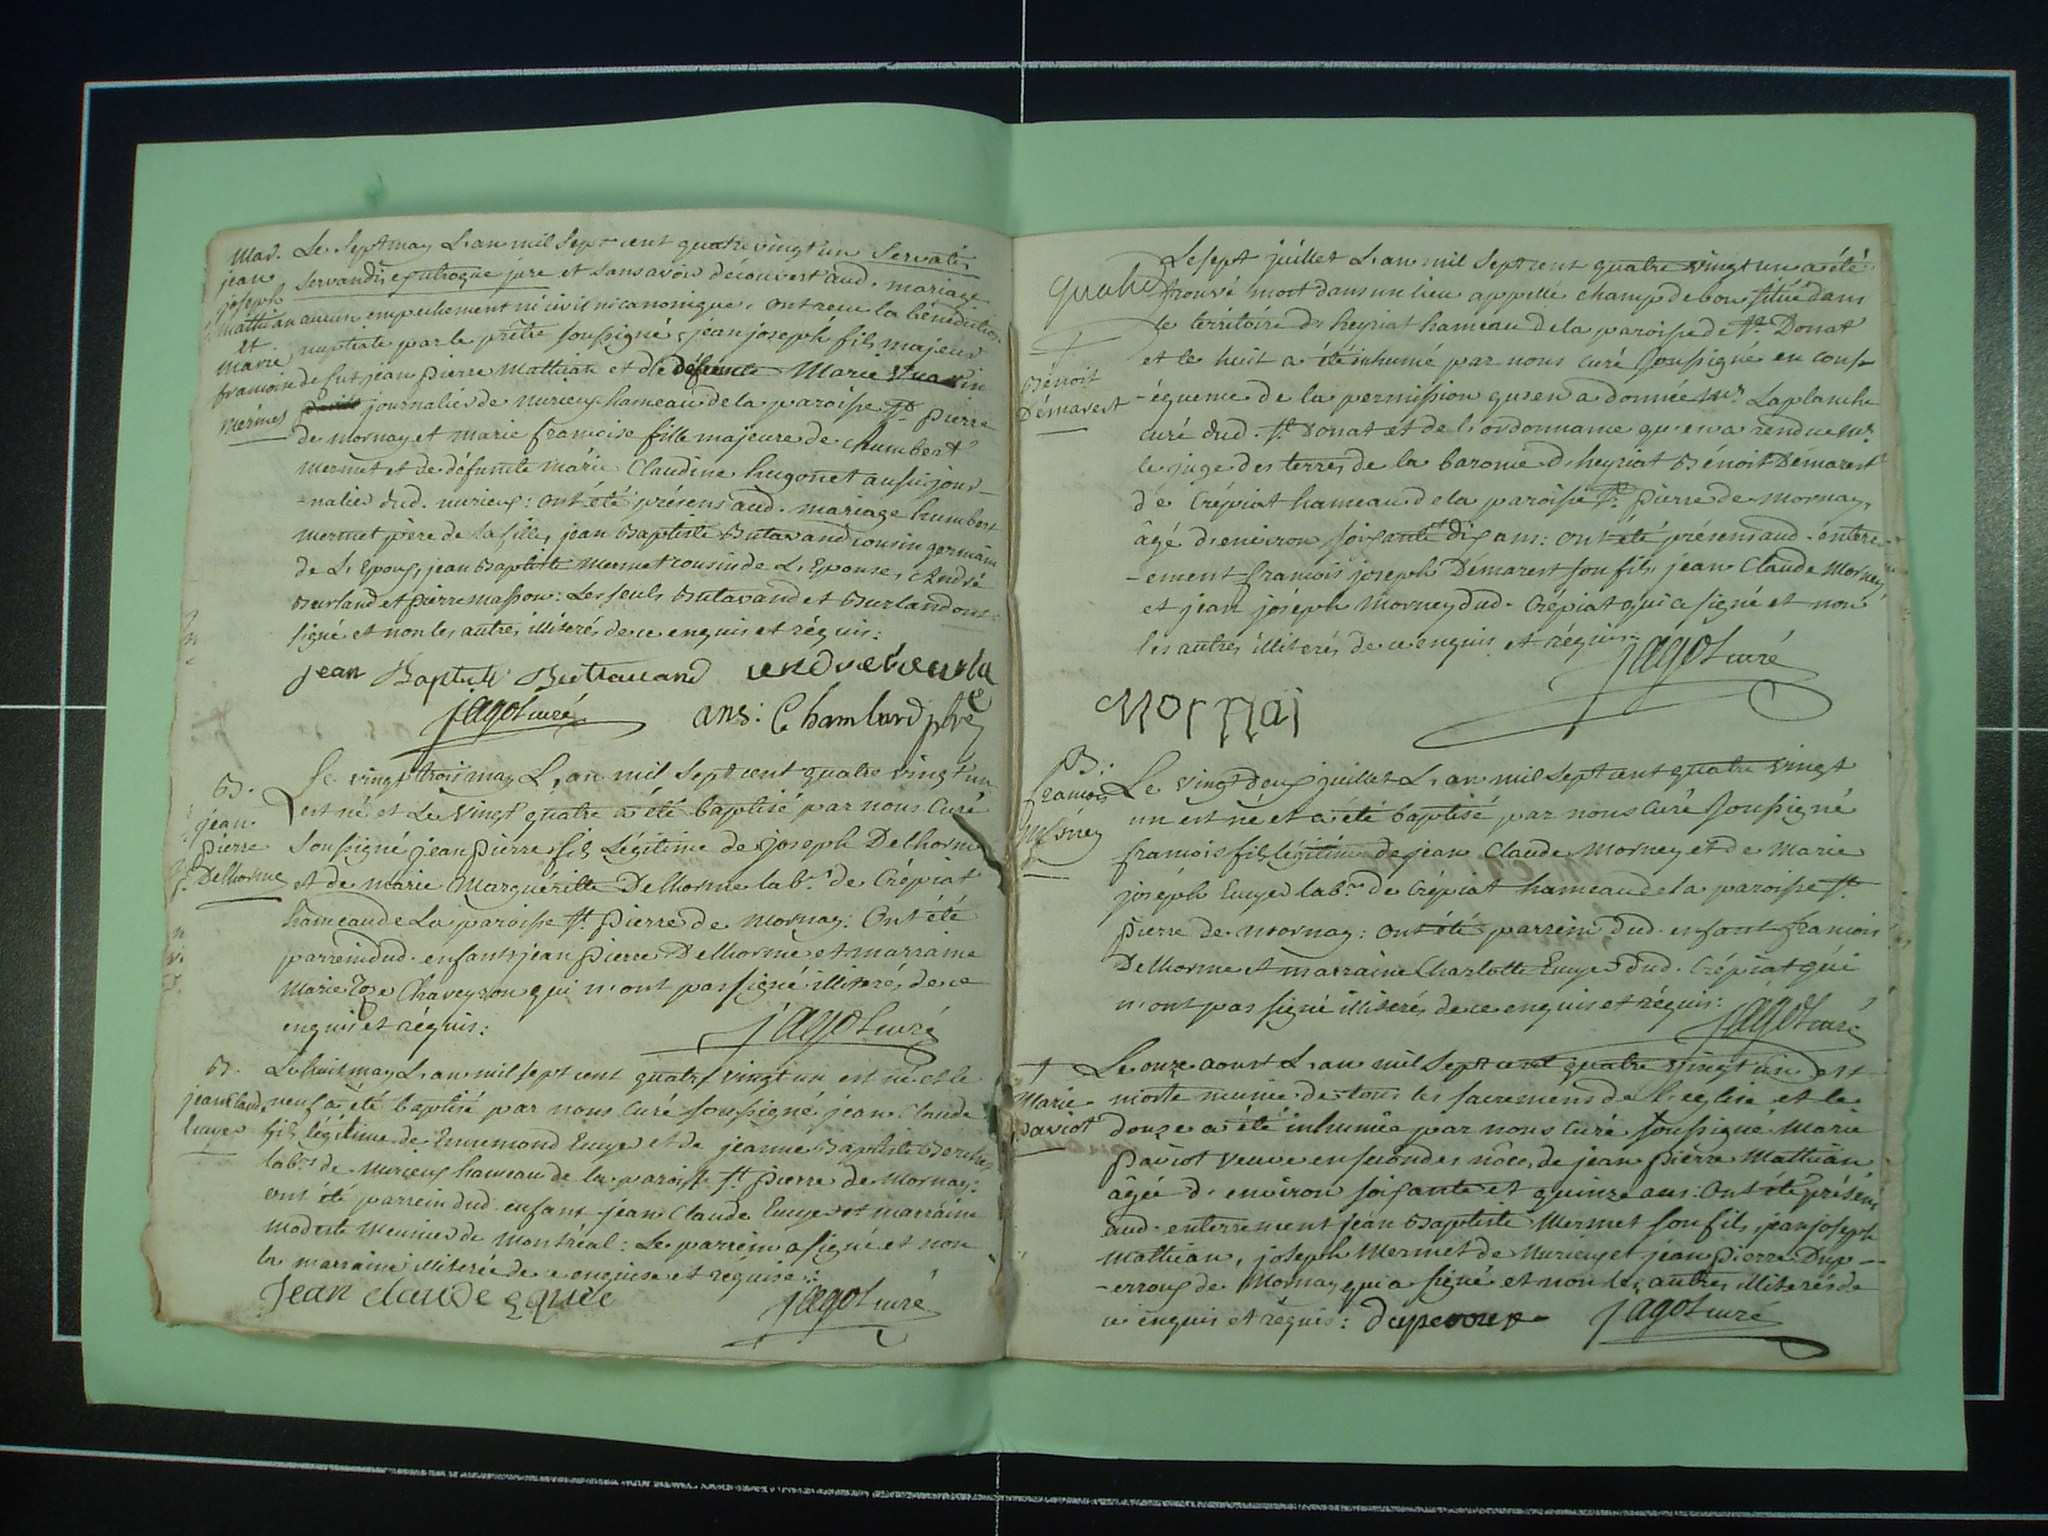 Mar.
jean
joseph
mathian
et
marie
francoise
mermet
Le sept may L'an mil sept cent quatre vingt un Servatis
servandis ex utroque jure et sans avoir découvert aud. mariage
aucun empechement ni civil ni canonique, ont reçu la bénédiction
nuptiale par le prêtre soussigné, jean joseph fils majeur
de fut jean pierre Mathian et de défunte Marie
journalier de nurieux hameau de la paroisse St pierre
de mornay et marie francoise fille majeure de humbert
mermet et de défunte marie Claudine hugonet aussi jour-
-nalier dud. nurieux: ont été présens aud. mariage humbert
mermet père de la fille, jean Baptiste Butavand cousin germain
de L'Epoux, jean Baptiste mermet cousin de L'Epouse, André
Burland et pierre masson: Les seuls Butavand et Burland ont
signé et non les autres illiterés de ce enquis et réquis:
jean Baptiste Buttavand
jagot curé ans: Chambard ptre
B.
jean
pierre
Delhorme
Le vingt trois may L'an mil sept cent quatre vingt un
est né et Le vingt quatre a été baptisé par nous Curé
soussigné jean pierre fils Légitime de joseph Delhorme
et de marie Marguéritte Delhorme labrs de Crépiat
hameau de La paroisse St. pierre de mornay: Ont été
parrein dud. enfant jean pierre Delhorme et marraine
marie Roze Chaveyron qui n'ont pas signé illiterés de ce
enquis et réquis: jagot curé
B.
jean Claude
Euyer
Le huit may L'an mil sept cent quatre vingt un est né et le
neuf a été baptisé par nous Curé soussigné jean Claude
fils légitime de Enremond Euyer et de jeanne Baptiste
labrs de nurieux hameau de la paroisse St. pierre de Mornay:
ont été parrein dud. enfant jean Claude Euyer et marraine
modeste meunier de Montréal: Le parrein a signé et non
la marraine illiterée de ce enquise et réquise:
Jean claude equier jagot curé
†
Benoit
Démarest
Le sept juillet L'an mil sept cent quatre vingt un a été
trouvé mort dans un lieu appellé champ de bou situé dans
le territoire d'heyriat hameau de la paroisse de St. Donat
et le huit a été inhumé par nous curé soussigné en cons-
-équence de la permission qu'en a donnée Mr. Laplanche
curé dud. St. Donat et de l'ordonnance qu'en a rendue Mr.
le juge des terres de la baronie d'heyriat Bénoit Démarest
de Crépiat hameau de la paroisse St. pierre de Mornay,
âgé d'environ soixante dix ans: ont été présens aud. enterr-
-ement francois joseph Démarest son fils, jean Claude Morney
et jean joseph Morney dud. Crépiat qui a signé et non
les autres illiterés de ce enquis et réquis: jagot curé
Mornai
B.
francois
Morney
Le vingt deux juillet L'an mil sept cent quatre vingt
un est né et a été baptisé par nous Curé soussigné
francois fils légitime de jean Claude Morney et de Marie
joséph Euyer labrs de Crépiat hameau de la paroisse St.
pierre de mornay: ont été parrein dud. enfant francois
Delhorme et marraine Charlotte Euyer dud. Crépiat qui
n'ont pas signé illiterés de ce enquis et réquis: jagot curé
†
Marie
paviot
Le onze aoust L'an mil sept cent quatre vingt un est
morte munie de tous les sacremens de l'eglise et le
douze a été inhumée par nous Curé soussigné Marie
paviot veuve en secondes nôces de jean pierre Mathian
âgée d'environ soixante et quinze ans: Ont été présens
aud. enterrement jean Baptiste Mermet son fils, jean joseph
mathian, joseph Mermet de Nurieux et jean pierre Dup-
-erroux de Mornay qui a signé et non les autres illiterés de
ce enquis et réquis: duperoux jagot curé